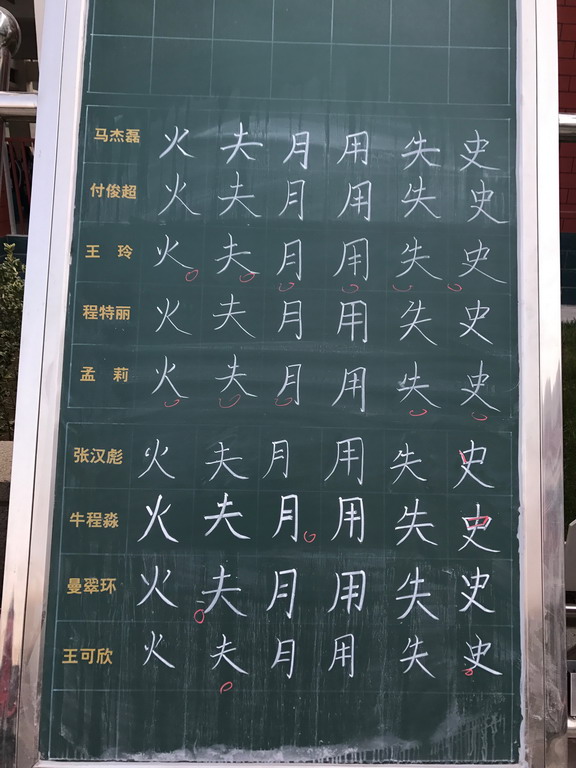 马杰磊 火 夫 月 用 失 史
付俊超 火 夫 月 用 失 史
王 玲 火 夫 月 用 失 史
程特丽 火 夫 月 用 失 史
孟 莉 火 夫 月 用 失 史
张汉彪 火 夫 月 用 失 史
牛程淼 火 夫 月 用 失 史
曼翠环 火 夫 月 用 失 史
王可欣 火 夫 月 用 失 史